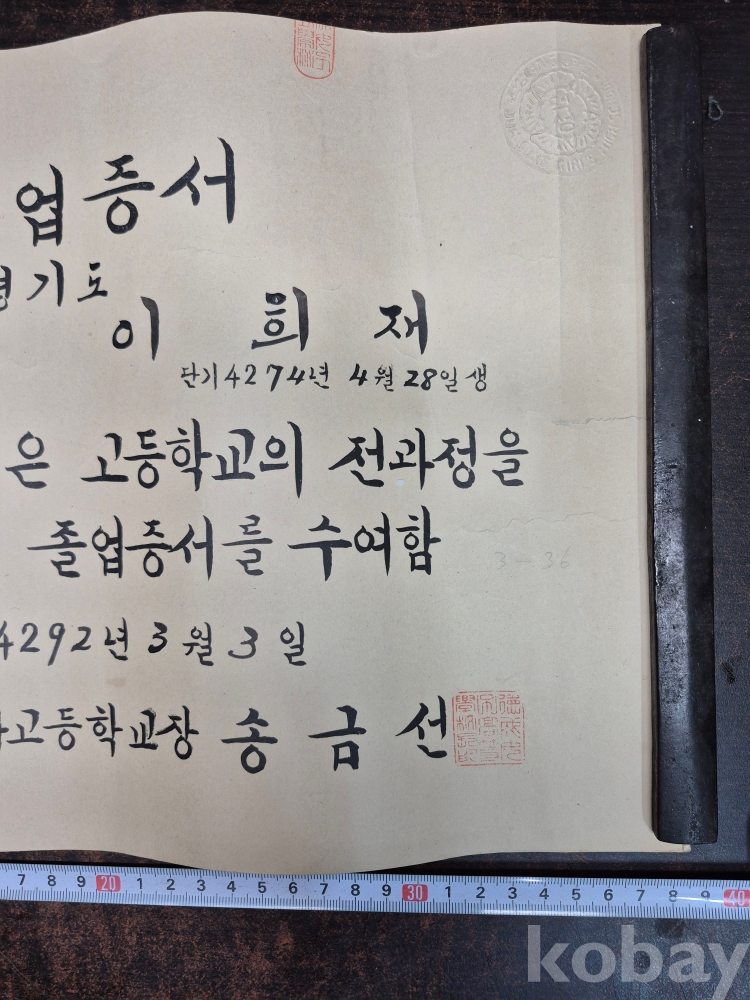 업증서
경기도
이 희 재
단기4274년 4월 28일생
은 고등학교의 전과정을
졸업증서를 수여함
3-36
4292년 3월 3일
고등학교장 송금선
7 8 9 20 1 2 3 4 5 6 7 8 9 30 1 2 3 4 5 6 7 8 9 40
kobay